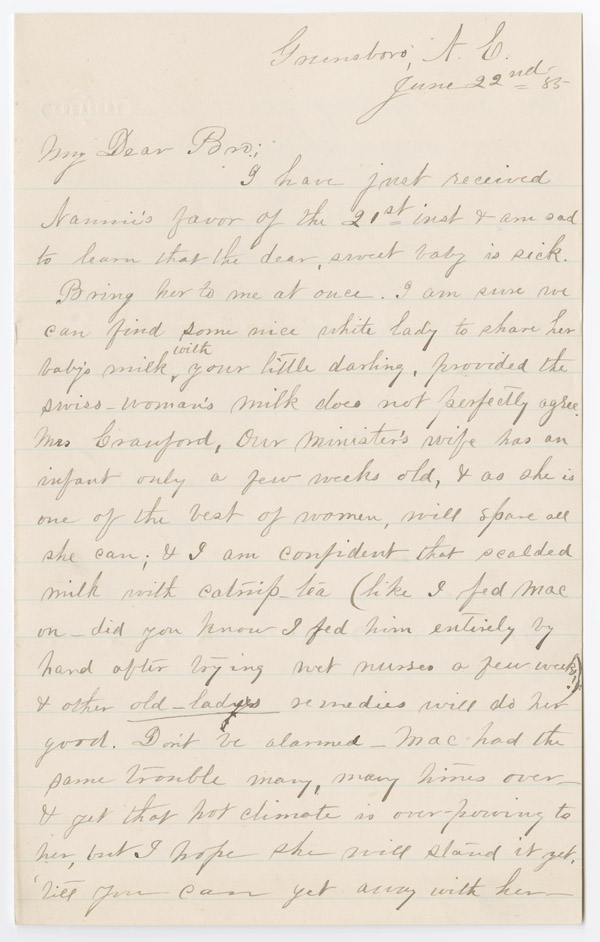 Greensboro, N. C.
June 22nd 85
My Dear Bro;
I have just received
Nannie's favor of the 21st inst & am sad
to learn that the dear, sweet baby is sick.
Bring her to me at once. I am sure we
can find some nice white lady to share her
baby's milk with your little darling, provided the
swiss-woman's milk does not perfectly agree.
Mrs Crawford, Our minister's wife has an
infant only a few weeks old, & as she is
one of the best of women, will spare all
she can; & I am confident that scalded
milk with catnip-tea (like I fed Mac
on - did you know I fed him entirely by
hand after trying wet nurses a few weeks!)
& other old-ladys remedies will do her
good. Don't be alarmed - Mac had the
same trouble many, many times over -
& yet that hot climate is over-powing to
her, but I hope she will stand it yet,
'till you can get away with her -